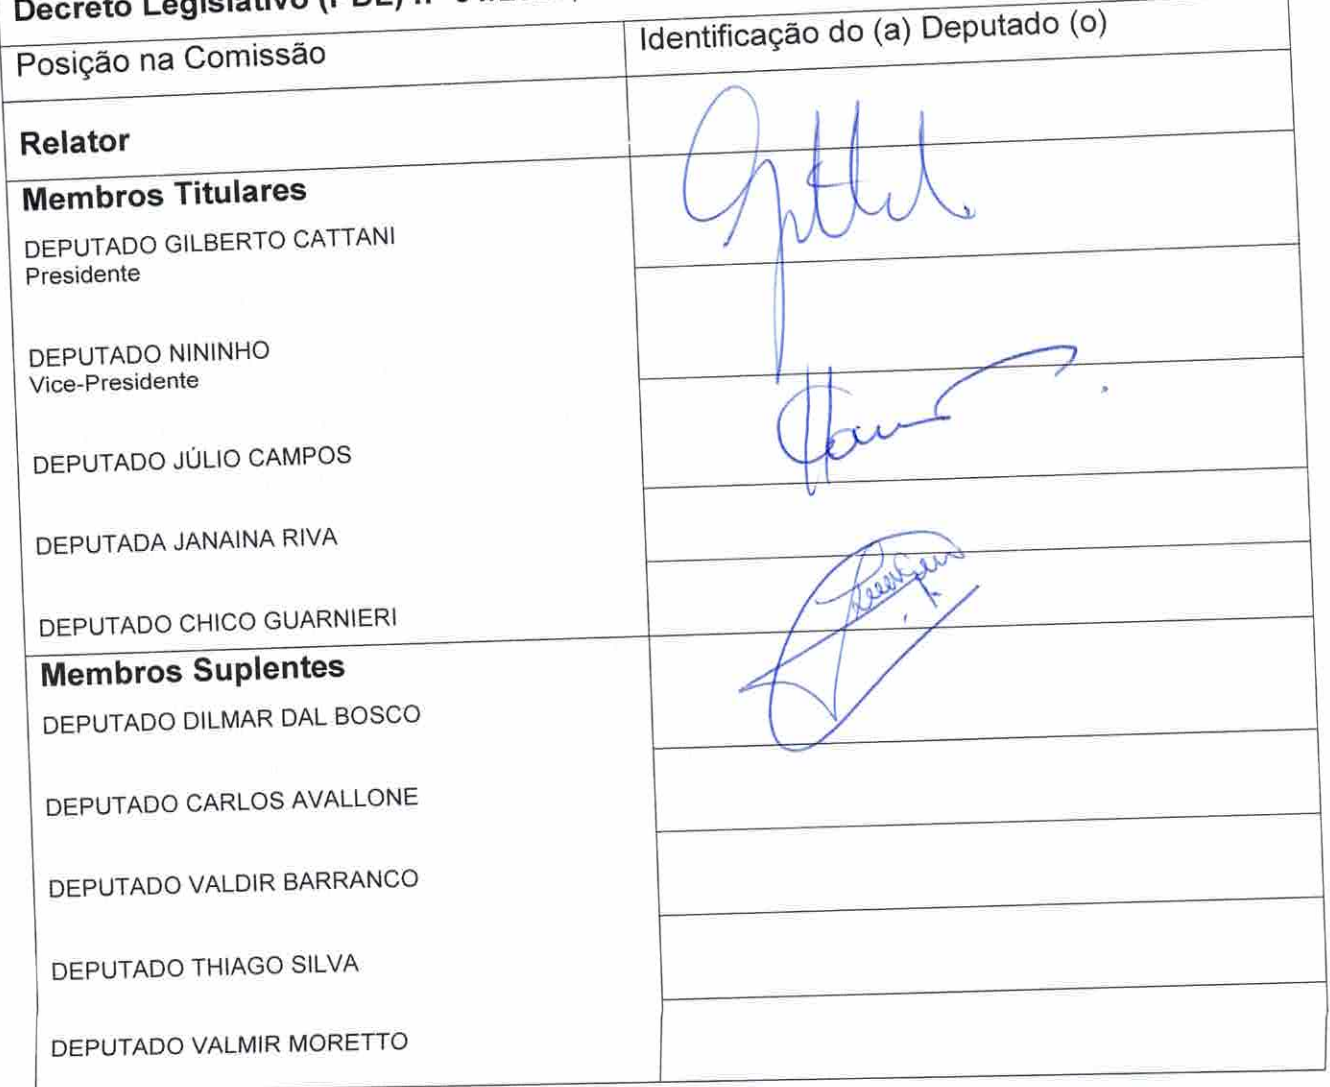 Decreto Legislativo
Posição na Comissão
Identificação do (a) Deputado (o)
Relator
Membros Titulares
DEPUTADO GILBERTO CATTANI
Presidente
DEPUTADO NININHO
Vice-Presidente
DEPUTADO JÚLIO CAMPOS
DEPUTADA JANAINA RIVA
DEPUTADO CHICO GUARNIERI
Membros Suplentes
DEPUTADO DILMAR DAL BOSCO
DEPUTADO CARLOS AVALLONE
DEPUTADO VALDIR BARRANCO
DEPUTADO THIAGO SILVA
DEPUTADO VALMIR MORETTO